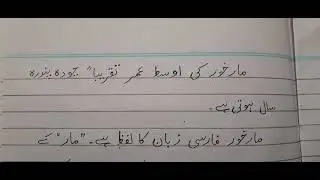 مارخور کی اوسط عمر تقریباً چودہ پندرہ
سال ہوتی ہے۔
مارخور فارسی زبان کا لفظ ہے۔ "مار" کے